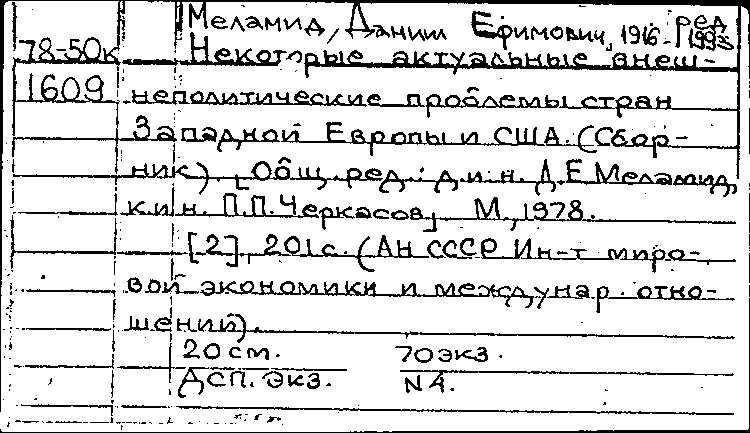 Меламид, Даниил Ефимович, 1916-1993 ред
78-50к Некоторые актуальные внеш-
1609 неполитические проблемы стран
Западной Европы и США. (Сбор-
ник). [Общ. ред.: д.и.н. Д.Е Меламид,
к.и.н. П.П. Черкасов]. М., 1978.
[2], 201с. (АН СССР Ин-т миро-
вой экономики и междунар. отно-
шений).
20 см. 70 экз.
ДСП. экз. N 4.